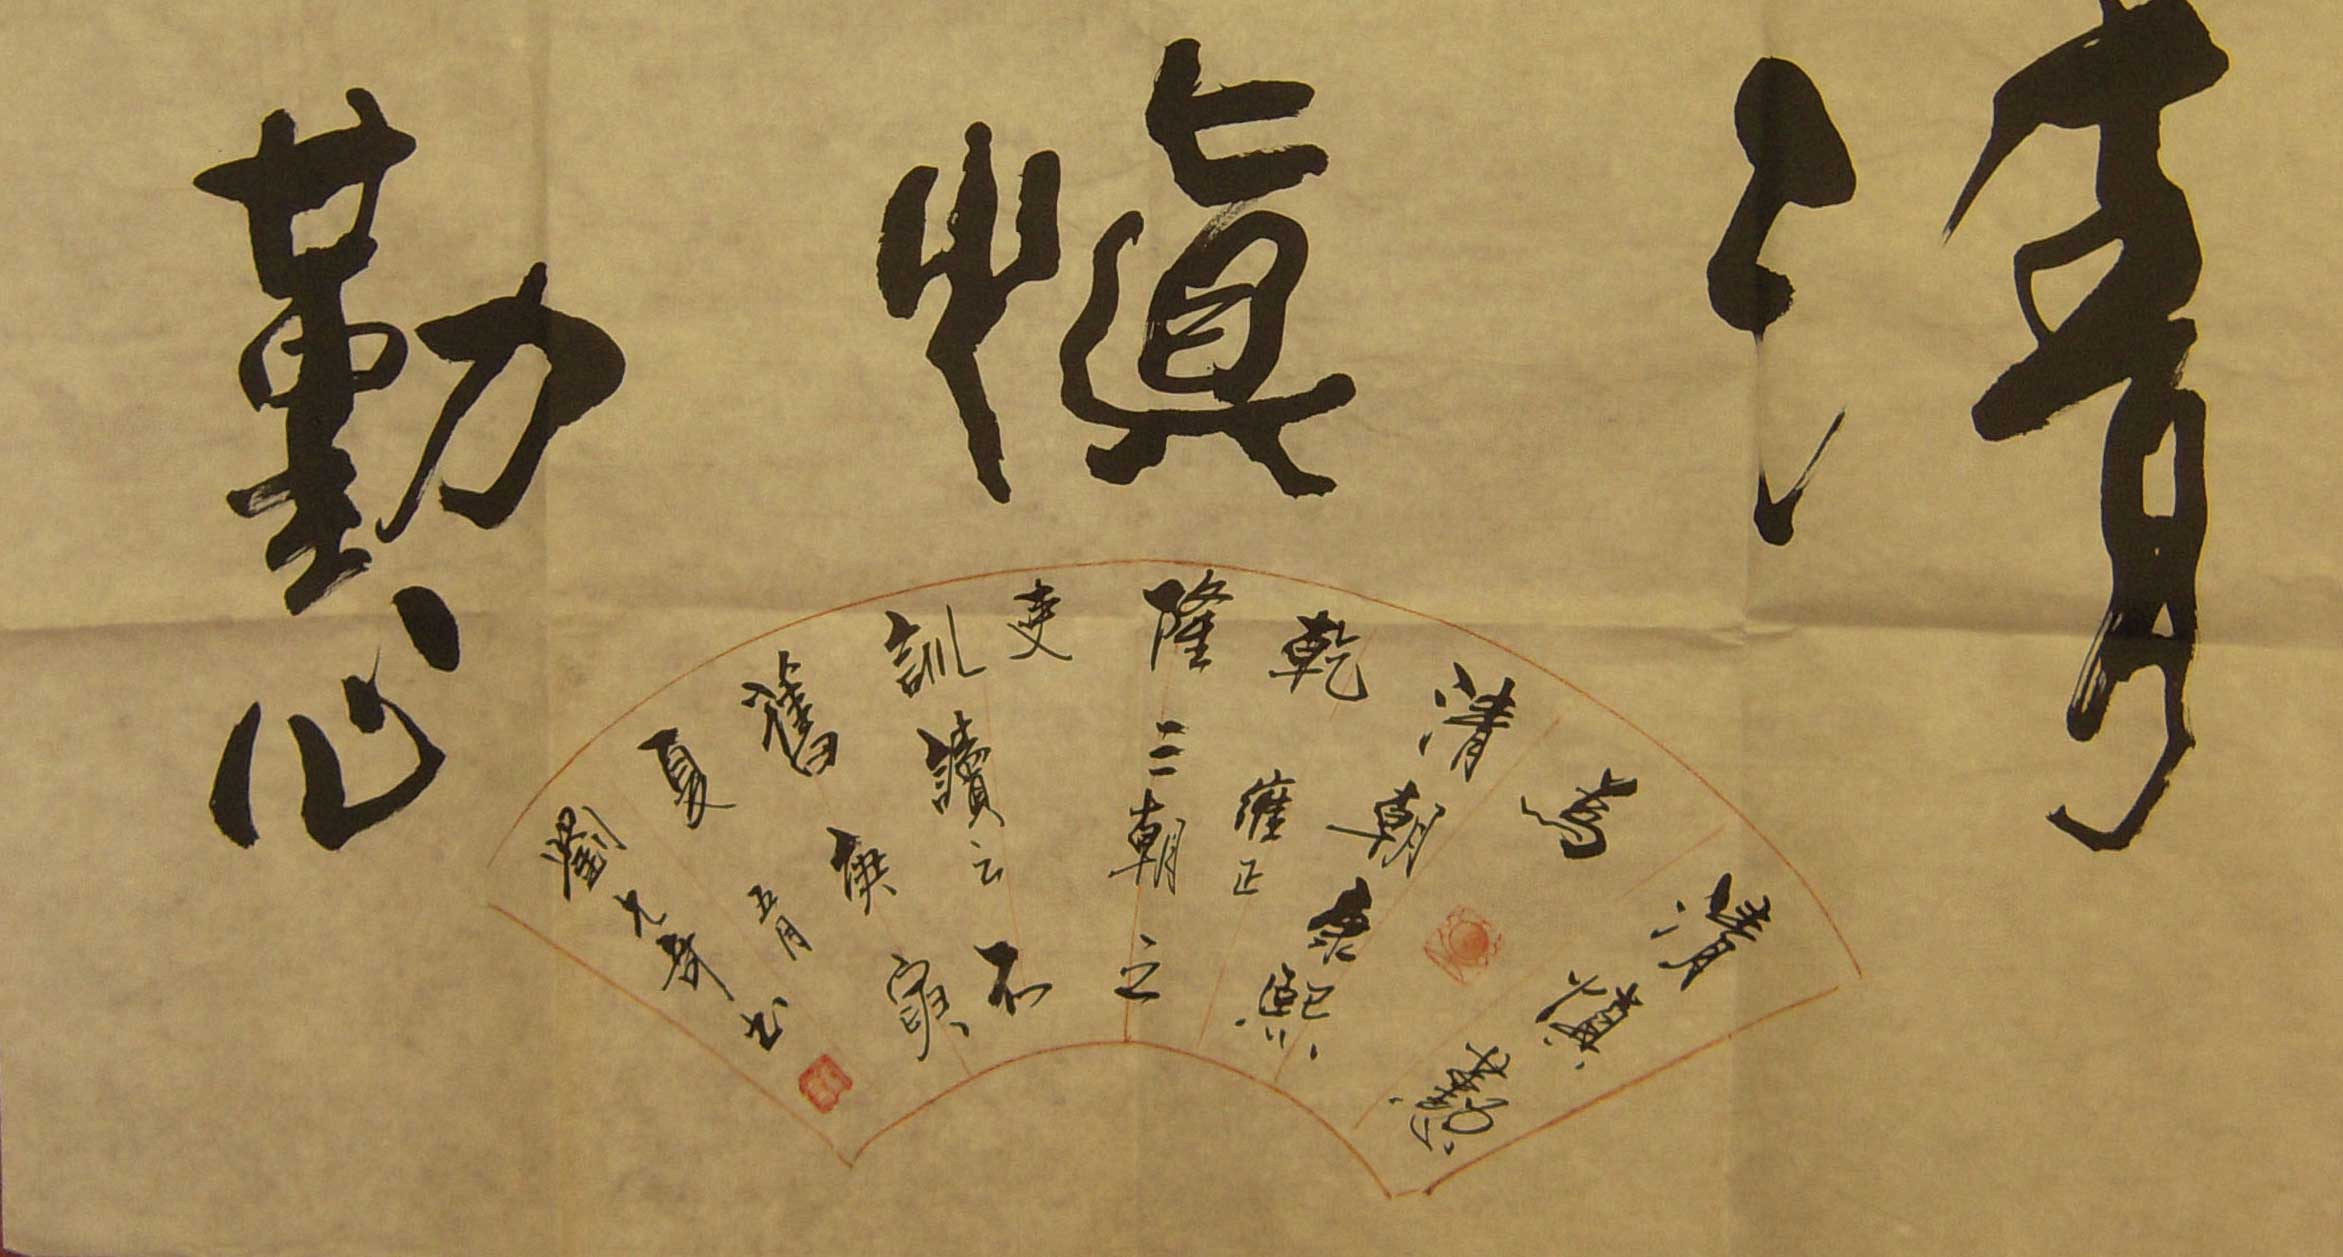 清慎懃
清慎懃
為
清朝康熙
雍正
乾
隆三朝之
吏
訓讀之不
舊庚寅
夏五月
劉九	書